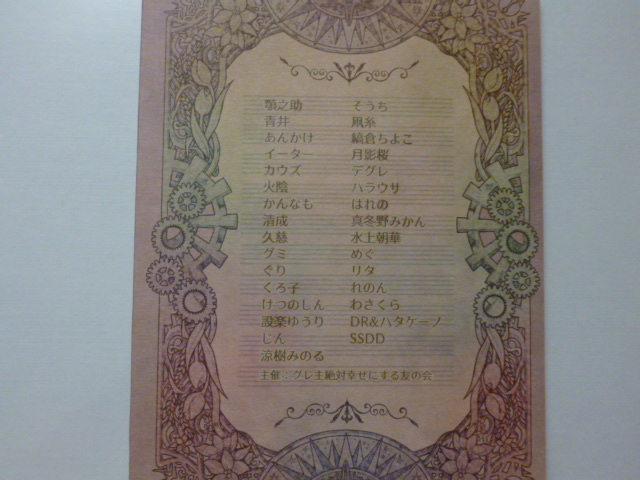 顎之助 そうち
青井 凪糸
あんかけ 縞倉ちよこ
イーター 月影桜
カウズ デグレ
火陰 ハラウサ
かんなも はれの
清成 真冬野みかん
久慈 水上朝華
グミ めぐ
ぐり リタ
くろ子 れのん
けつのしん わさくら
設楽ゆうり DR&ハタケーブ
じん SSDD
涼樹みのる
主催:グレ主絶対幸せにする友の会